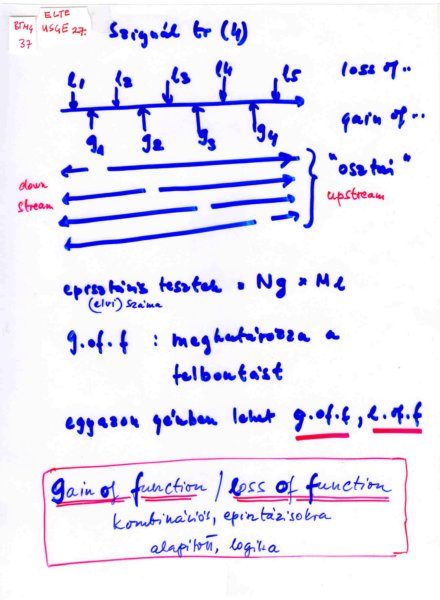 BTMG
37
ELTE
USGE 27.
Szignál tr (4)
l1 l2 l3 l4 l5
loss of..
g1 g2 g3 g4
gain of..
down
stream
"osztni"
upstream
episztázis tesztek = Ng × Ml
(elvi) száma
g.of.f : meghatározza a
felbontást
egyazon génben lehet g.of.f, l.of.f
gain of function / loss of function
kombinációs, episztázisokra
alapított, logika